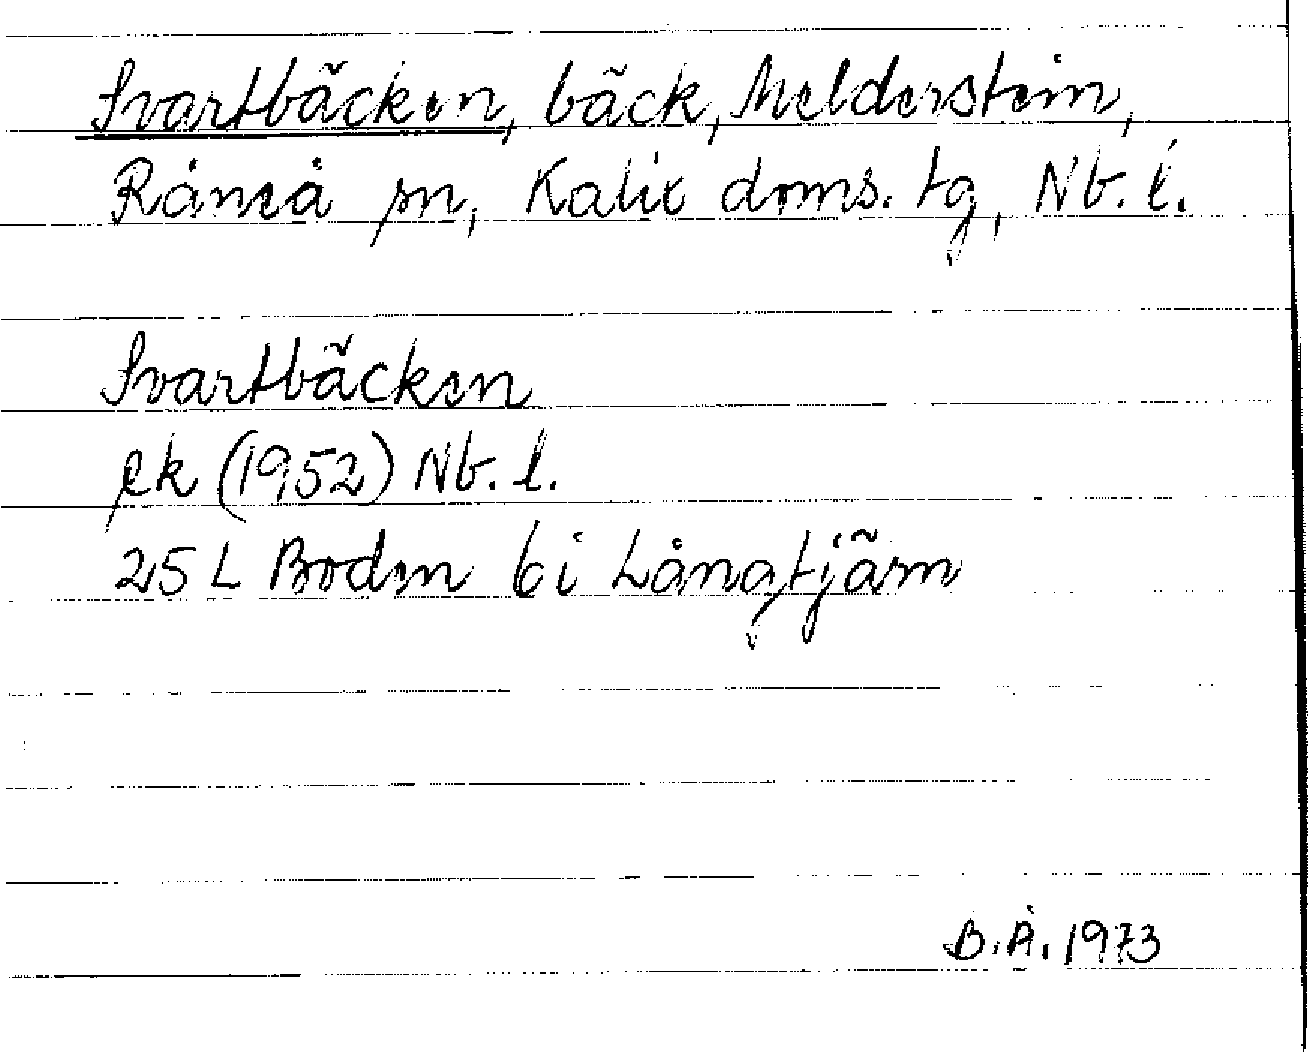 Svartbäcken, bäck, Melderstein,
Råneå sn, Kalix doms. tg, Nb. l.
Svartbäcken
ek (1952) Nb. l.
25 L Boden 6 i Långtjärn
B.Å. 1973